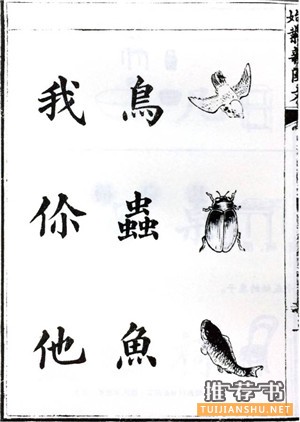 鳥
蟲
魚
我
伱
他
推荐·书
TUIJIANSHU.NET